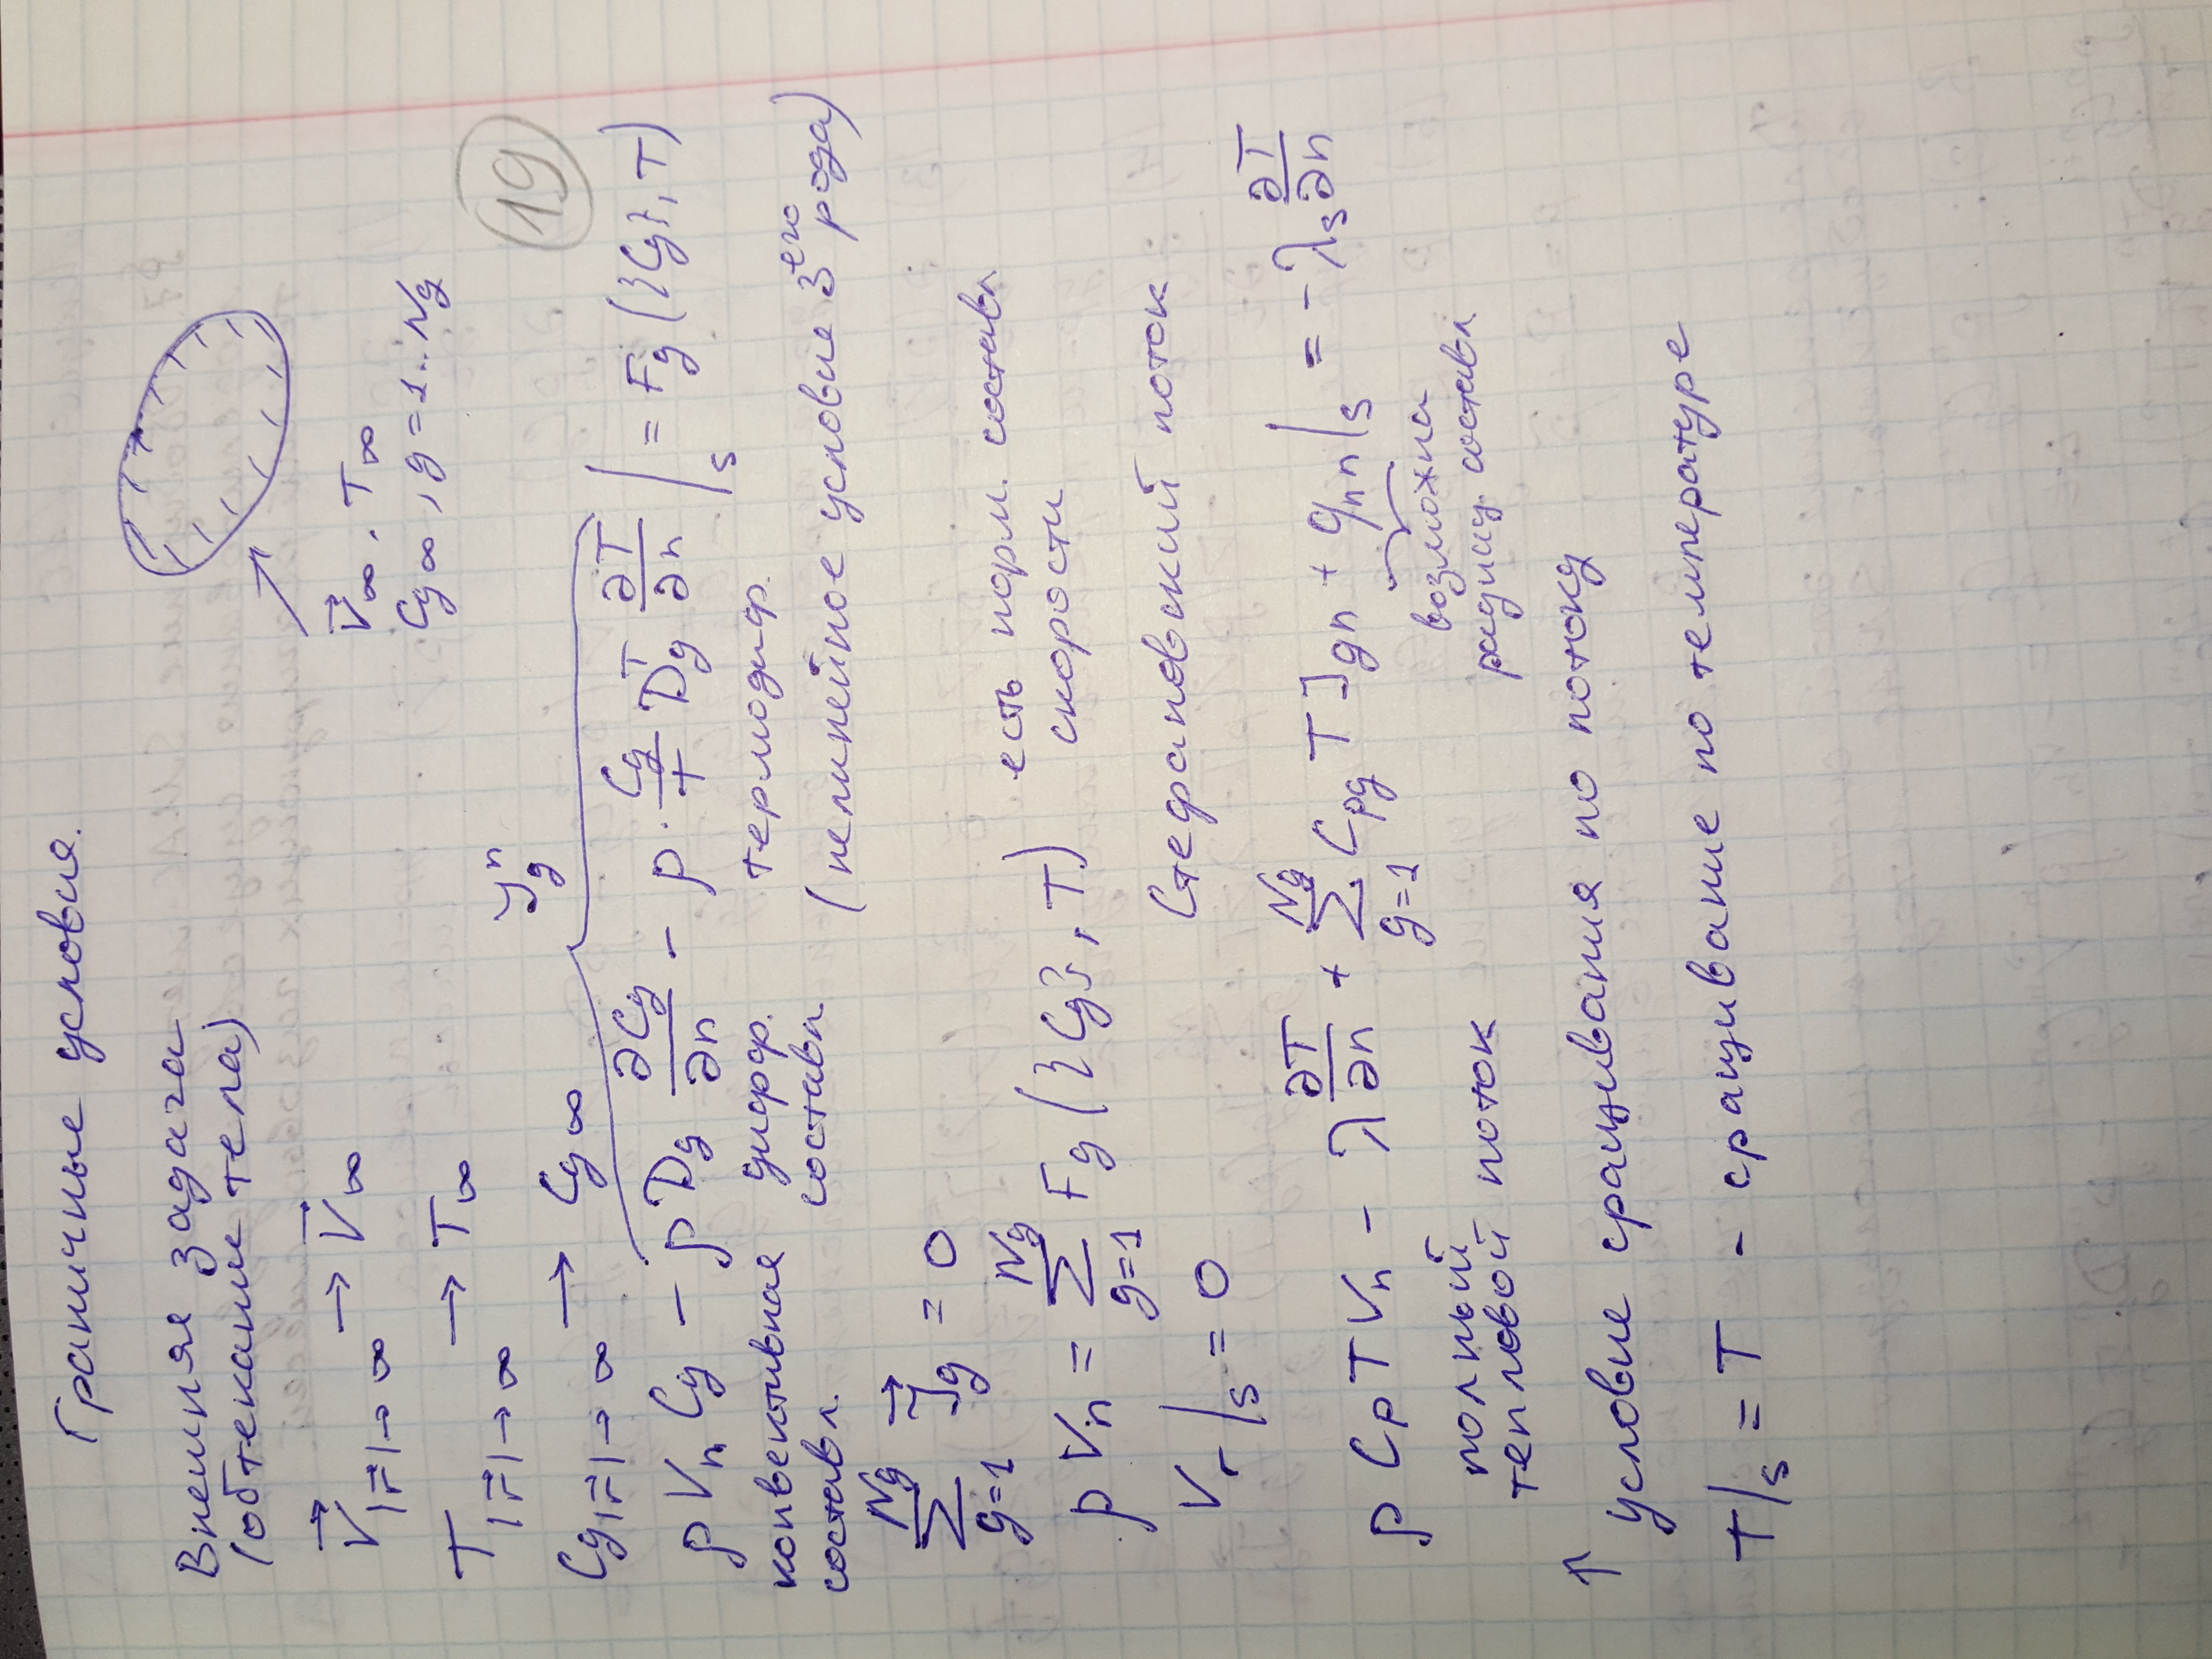 Граничные условия.
Внешняя задача
(обтекание тела)
V⃗ |r⃗|→∞ → V⃗∞
V⃗∞, T∞
Cg∞, g=1..Ng
T |r⃗|→∞ → T∞
19
Cg |r⃗|→∞ → Cg∞
Jgⁿ
ρVnCg - ρDg ∂Cg/∂n - ρ · Cg/T Dgᵀ ∂T/∂n |s = Fg({Cg}, T)
конвективная дифф. термодиф.
составл. составл. (нелинейное условие 3его рода)
∑g=1Ng J⃗g = 0
ρVn = ∑g=1Ng Fg({Cg}, T) есть норм. составл
скорости
Стефановский поток
Vτ|s = 0
ρCpTVn - λ ∂T/∂n + ∑g=1Ng Cpg T Jgn + qпn|s = -λs ∂T/∂n
полный возможна
тепловой поток радиац. составл.
↑ условие сращивания по потоку
T|s = T - сращивание по температуре